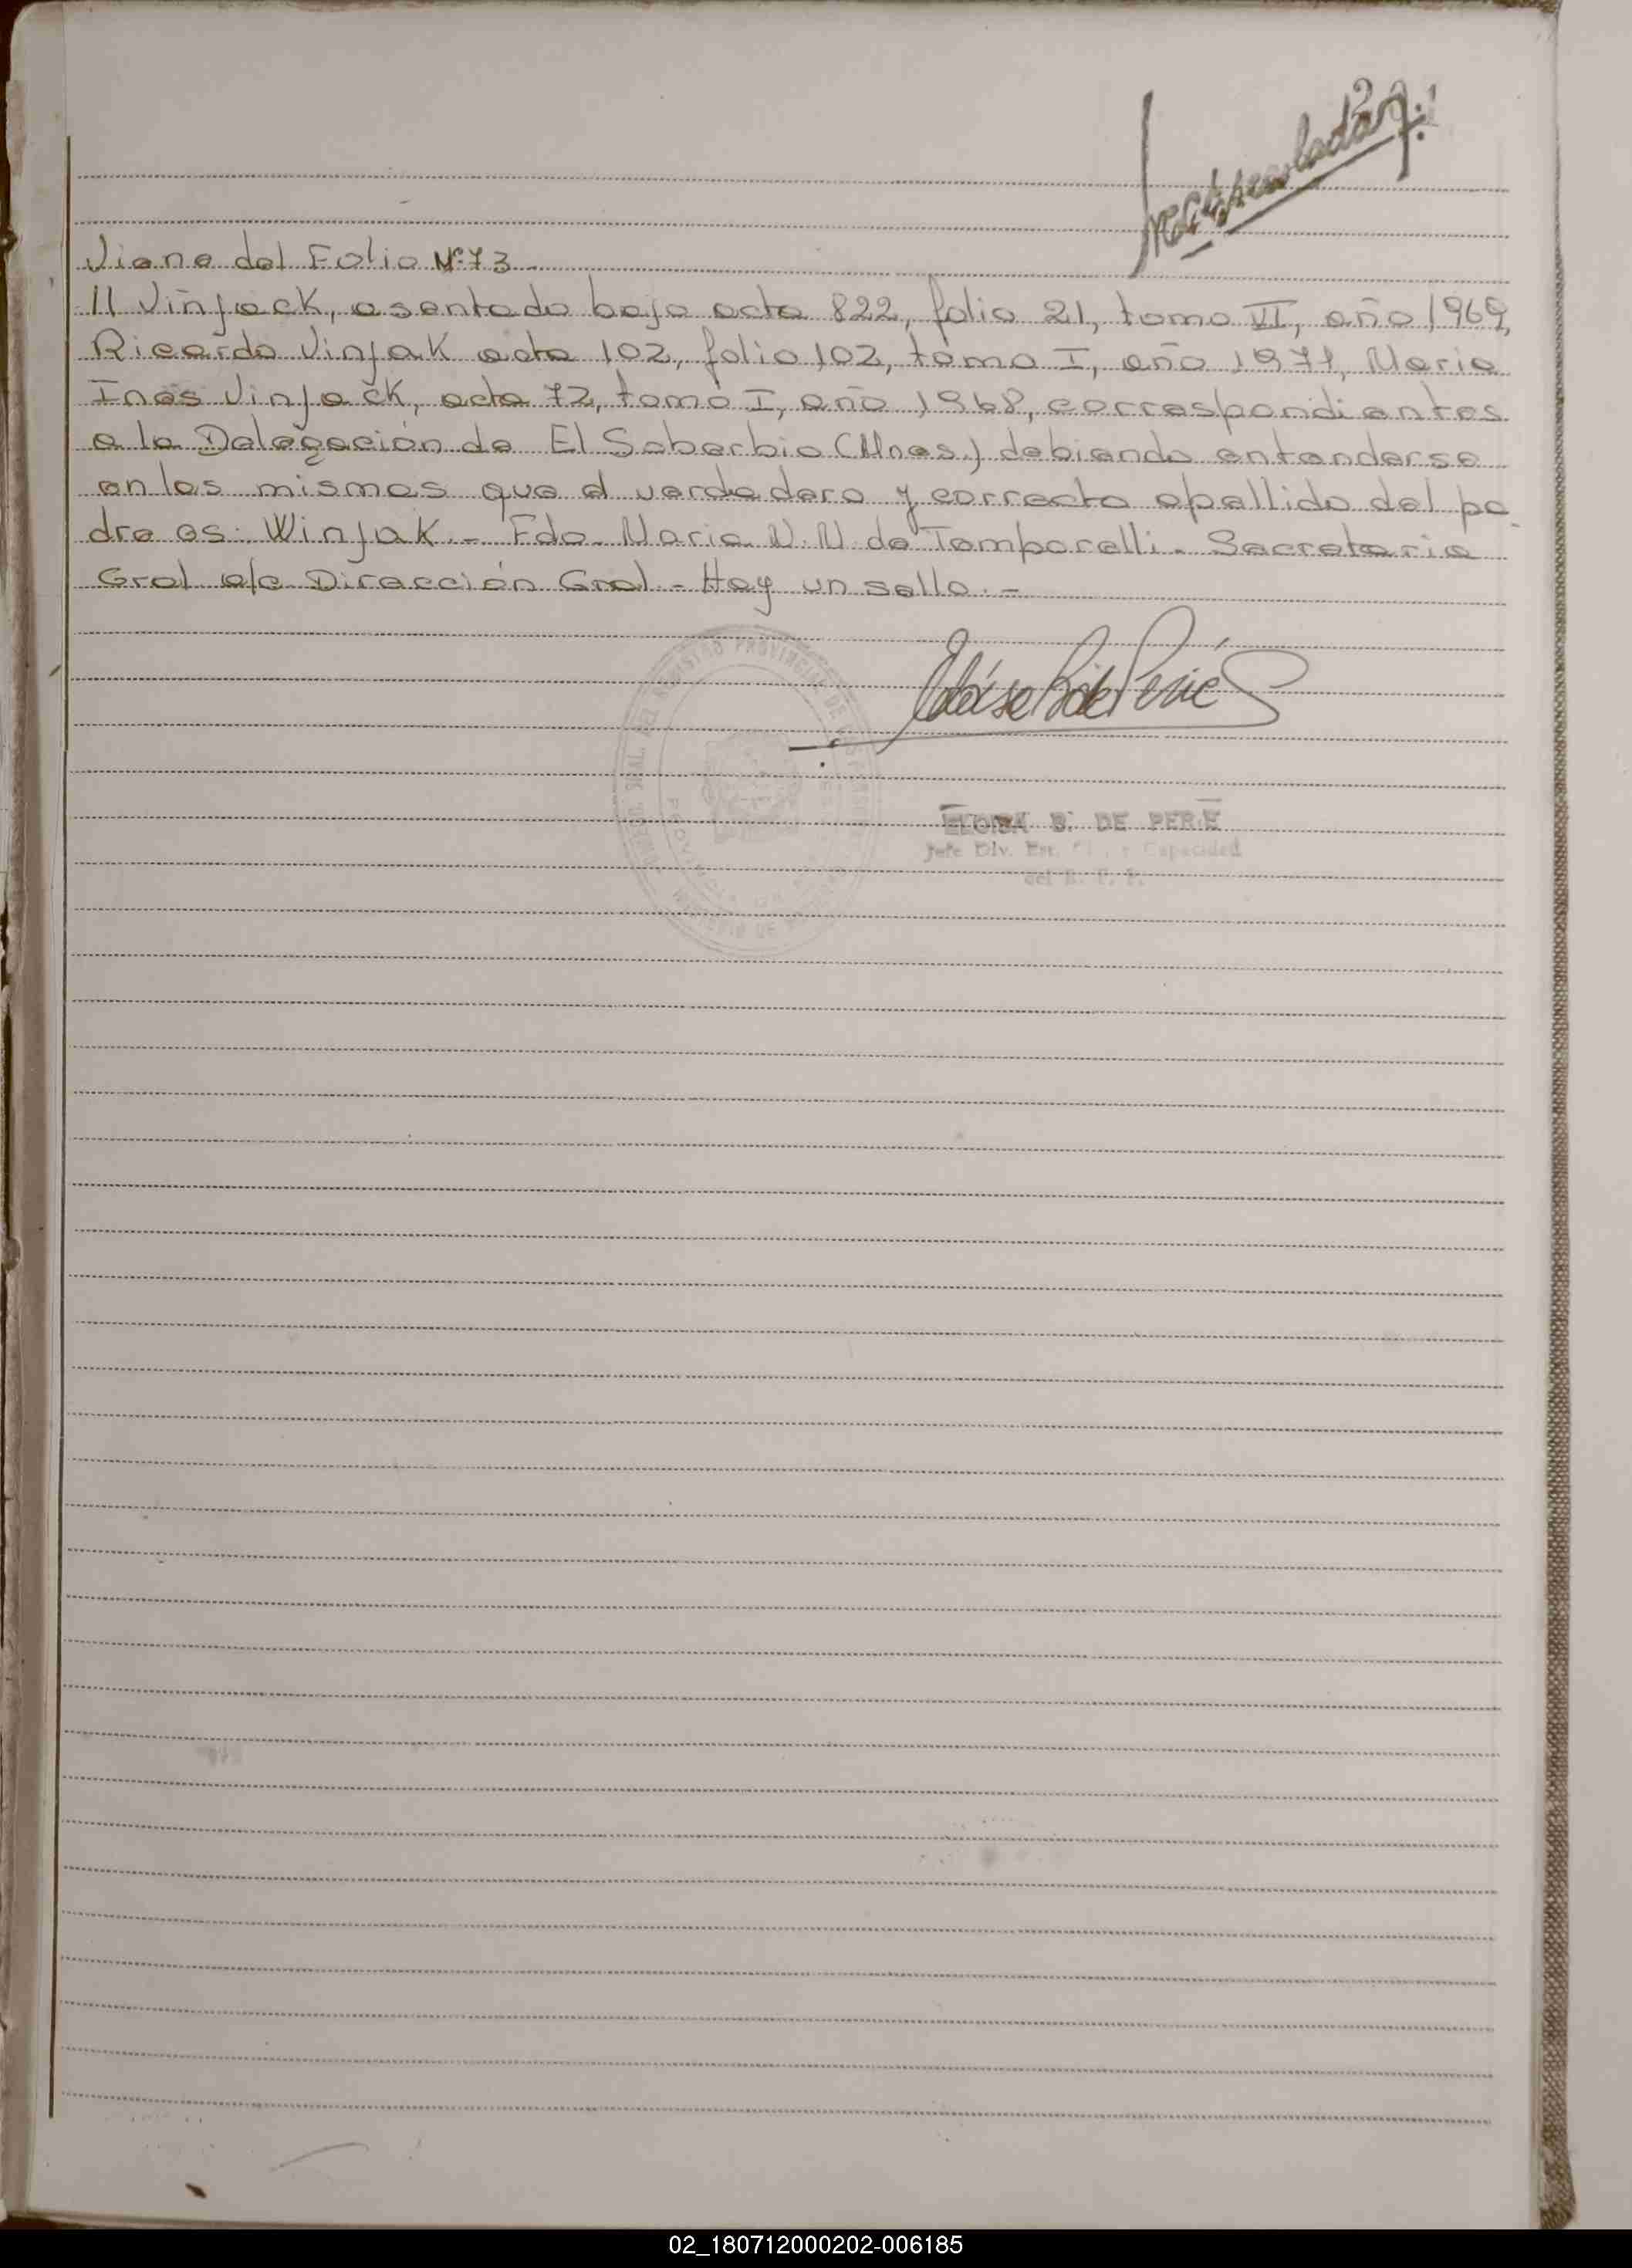 Viene del Folio Nº 73
11 Viñjack, asentado bajo acta 822, folio 21, tomo VI, año 1969,
Ricardo Vinjak acta 102, folio 102, tomo I, año 1971, Maria
Ines Vinjack, acta 72, tomo I, año 1968, correspondientes
a la Delegación de El Soberbio (Mnes.) debiendo entenderse
en las mismas que el verdadero y correcto apellido del pa-
dre es: Winjak.- Fdo. Maria N. N. de Temporelli. Secretaria
Gral a/c Dirección Gral.- Hay un sello.-
ELOISA B. DE PERIE
Jefe Div. Est. Capacidad
del R. P. P.
02_180712000202-006185